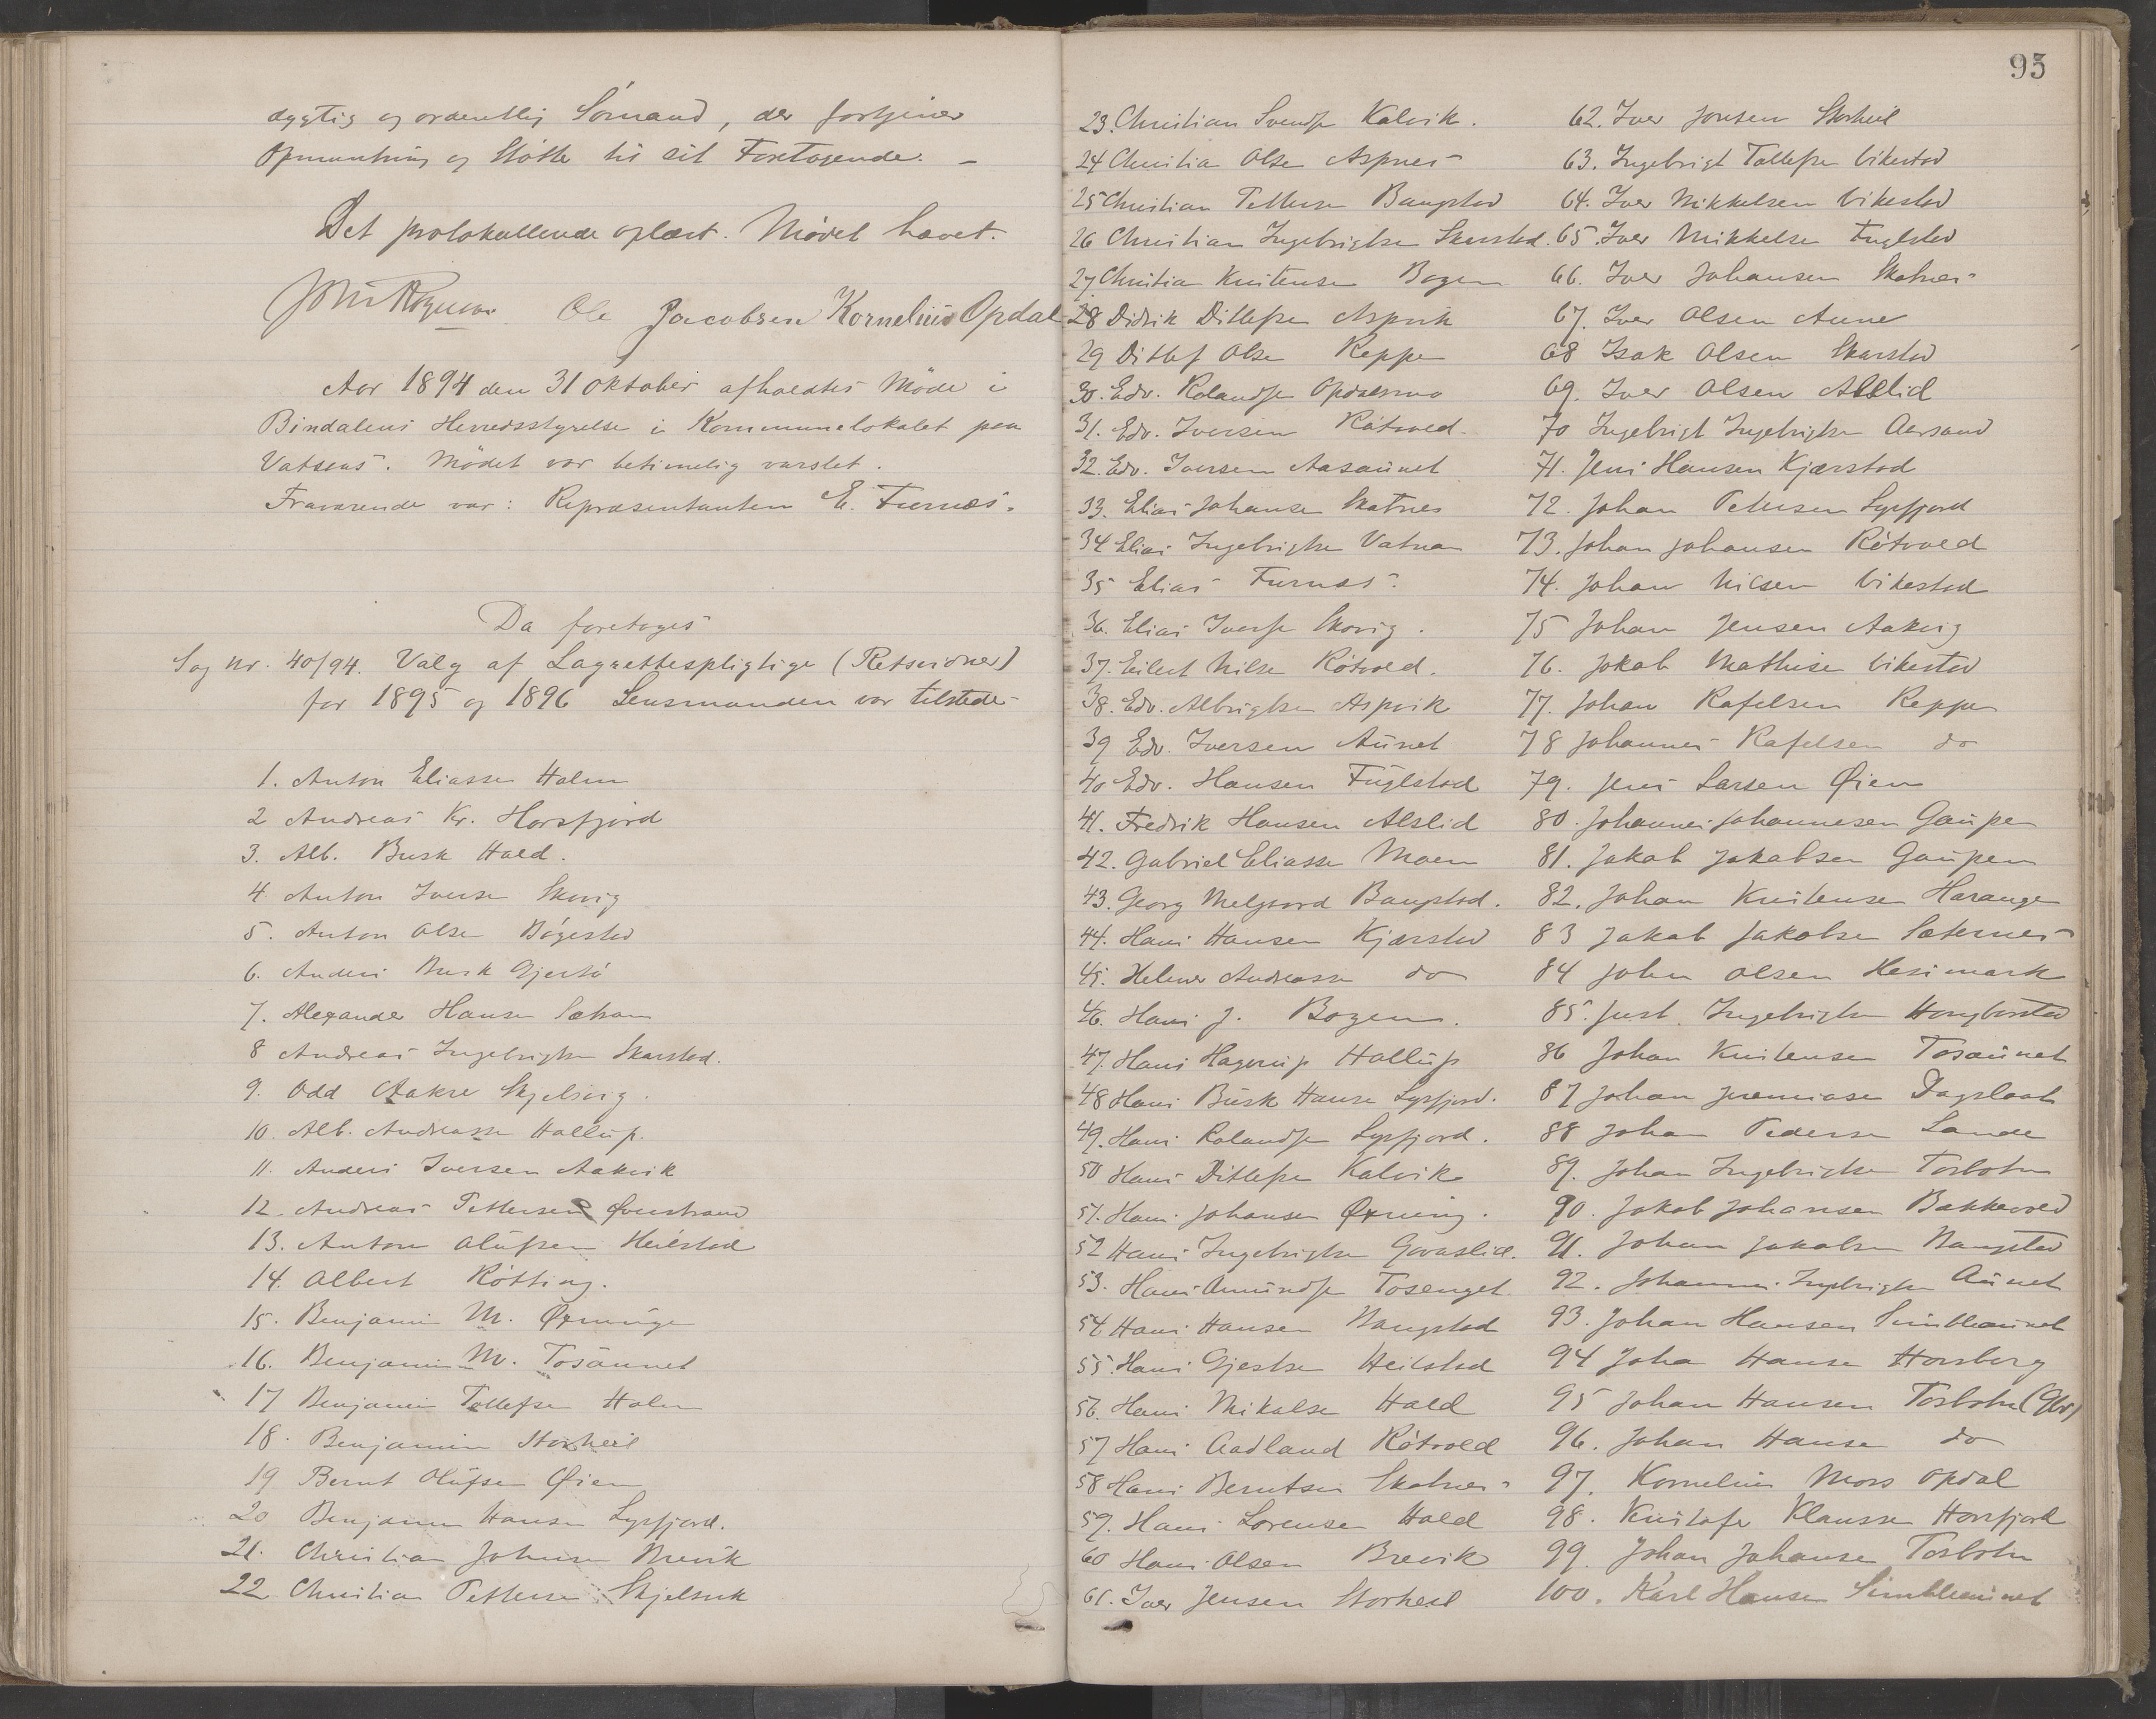 dygtig og ordentlig Sömand, der fortjener
Opmuntring og Støtte til sit Foretagende. –
Det protokollerede oplæst. Mödet hævet.
Ole Jacobsen Kornelius Opdal
Aar 1894 den 31 Oktober afholdtes Möde i
Bindalens Herredsstyrelse i Kommunelokalet paa
Vatsaas. Mödet var betimelig varslet.
Fraværende var: Repræsentanten E. Furnæs.
Da foretoges
Sag nr. 40/94. Valg af Lagrettespligtige (Retsvidner)
for 1895 og 1896 Lensmanden var tilstede
1. Anton Eliassen Holm
2 Andreas Kr. Horsfjord
3. Alb. Busk Hald.
4. Anton Iversen Skovig
5. Anton Olsen Bøgestad
6. Anders Busk Gjertö
7. Alexander Hansen
8 Andreas Ingebrigtsen Skarstad.
9. Odd Aakre Skjelsvig.
10. Alb. Andreassen Hallup.
11. Anders Iversen Aakvik
12. Andreas Pettersen Øverstrand
13. Anton Olufsen Heilstad
14. Albert Rötting.
15. Benjamin M. Øxninge
16. Benjamin M. Tosaunet
17 Benjamin Tollefsen Holm
18. Benjamin Storheil
19 Bernt Olufsen Øien
20 Benjamin Hansen Lysfjord.
21. Christian Johnsen Brevik
22 Christian Pettersen Skjelsvik
95
23. Christian Svendsen Kalvik.
24 Christian Olsen Aspnes
25 Christian Pettersen Bangstad
26 Christian Ingebrigtsen Skarstad.
27 Christian Kristensen Bogen
28 Didrik Ditlefsen Aspvik
29 Ditlef Olsen Reppen
30. Edv. Rolandsen Opdalsmo
31. Edv. Iversen Rötvold.
32. Edv. Iversen Aasaunet
33. Elias Johansen Skotnes
34 Elias Ingebrigtsen Vatnan
35 Elias Furnæs.
36. Elias Iversen Skovig.
37. Eilert Nilsen Rötvold.
38. Edv. Albrigtsen Aspvik
39 Edv. Iversen Aunet
40 Edv. Hansen Fuglstad
41. Fredrik Hansen Alslid
42. Gabriel Eliassen Moen
43. Georg Melgaard Bangstad.
44. Hans Hansen Kjærstad
45. Helmer Andreassen do
46. Hans J. Bogen.
47. Hans Hagerup Hallup
48 Hans Busk Hansen Lysfjord.
49. Hans Rolandsen Lysfjord.
50 Hans Ditlefsen Kalvik
51. Hans Johansen Øxning.
52 Hans Ingebrigtsen Gaaslid.
53. Hans Amundsen Tosenget
54 Hans Hansen Nangstad
55. Hans Gjertsen Heilstad
56. Hans Mikalsen Hald
57 Hans Aadland Rötvold
58 Hans Berntsen Skotnes
59. Hans Lorensen Hald
60 Hans Olsen Brevik
61. Iver Jensen Storheil
62. Iver Jonsen Storheil
63. Ingebrigt Tollefsen Vikestad
64. Iver Mikkelsen Vikestad
65. Iver Mikkelsen Fuglstad
66. Iver Johansen Skotnes
67. Iver Olsen Aune
68 Isak Olsen Skarstad
69. Iver Olsen Alslid
70 Ingebrigt Ingebrigtsen Aarsand
71. Jens Hansen Kjærstad
72. Johan Petersen Lysfjord
73. Johan Johansen Rötvold
74. Johan Nilsen Vikestad
75 Johan Jensen Aakvig
76. Jakob Mathisen Vikestad
77. Johan Rafelsen Reppen
78 Johannes Rafelsen do
79. Jens Larsen Øien
80. Johannes Johannesen Gaupen
81. Jakob Jakobsen Gaupen
82. Johan Kristensen Harangen
83 Jakob Jakobsen Sæternes
84 John Olsen Hesimark
85. Just. Ingebrigtsen
86 Johan Kristensen Tosaunet
87 Johan Jeremiasen Dagslaat
88 Johan Pedersen Lande
89. Johan Ingebrigtsen Tosbotn
90. Jakob Johansen Bakkevold
91. Johan Jakobsen Nangstad
92. Johannes Ingebrigtsen Aunet
93. Johan Hansen Simleaunet
94 Johan Hansen Horsberg
95 Johan Hansen Tosbotn
96. Johan Hansen do
97. Kornelius Moss Opdal
98. Kristofer Klausen Horsfjord
99. Johan Johansen Tosbotn
100. Karl Hansen Simleaunet